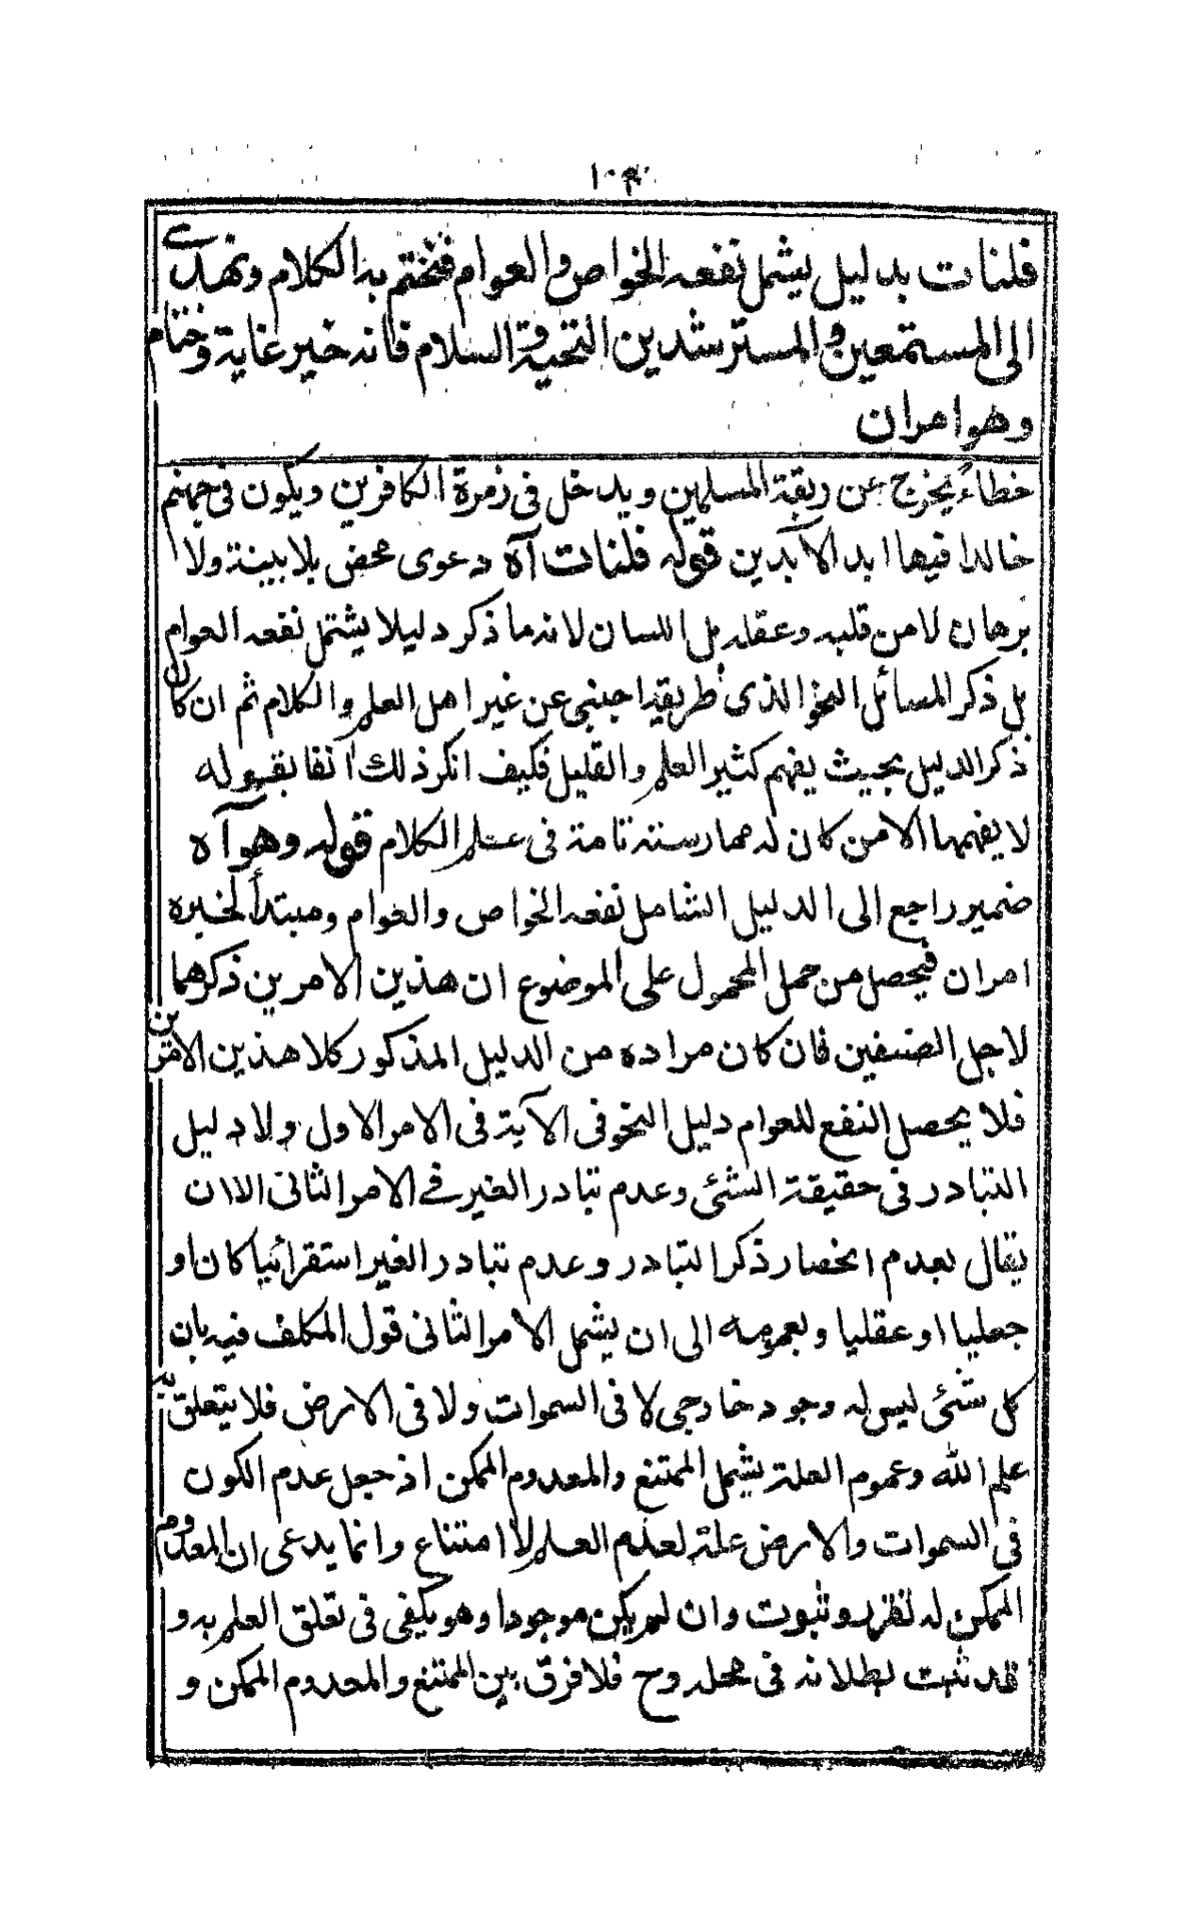 ١٠٤
فلنات بدليل يشمل نفعه الخواص والعوام فنختم به الكلام ونهدي
الى المستمعين والمسترشدين التحية والسلام فانه خير غاية وختام
وهو امران
خطاءً يخرج عن ربقة المسلمين ويدخل فى زمرة الكافرين ويكون فى جهنم
خالدا فيها ابد الآبدين قوله فلنات آه دعوى محض بلا بينة ولا
برهان لا من قلبه وعقله بل اللسان لانه ما ذكر دليلا يشتمل نفعه العوام
بل ذكر المسائل النحو الذى طريقه اجنبى عن غير اهل العلم والكلام ثم ان كان
ذكر الدليل بحيث يفهم كثير العلم والقليل فكيف انكر ذلك آنفا بقوله
لا يفهمها الا من كان له ممارسته تامة فى علم الكلام قوله وهو آه
ضمير راجع الى الدليل الشامل نفعه الخواص والعوام ومبتدأ لخبره
امران فيحصل من حمل المحمول على الموضوع ان هذين الامرين ذكرهما
لاجل الصنفين فان كان مراده من الدليل المذكور كلا هذين الامرين
فلا يحصل النفع للعوام دليل النحو فى الآية فى الامر الاول ولا دليل
التبادر فى حقيقة الشئى وعدم تبادر الغير فے الامر الثانى الا ان
يقال بعدم انحصار ذكر التبادر وعدم تبادر الغير استقرائيا كان او
جعليا او عقليا وبعمومه الى ان يشمل الامر الثانى قول المكلف فيه بان
كل شئى ليس له وجود خارجى لا فى السموات ولا فى الارض فلا يتعلق به
علم الله وعموم العلة يشمل الممتنع والمعدوم الممكن اذ جعل عدم الكون
فى السموات والارض علة لعدم العلم لا امتناع وانما يدعى ان المعدوم
الممكن له تقرر وثبوت وان لم يكن موجودا وهو يكفى فى تعلق العلم به و
قد ثبت بطلانه فى محله وح فلا فرق بين الممتنع والمعدوم الممكن و